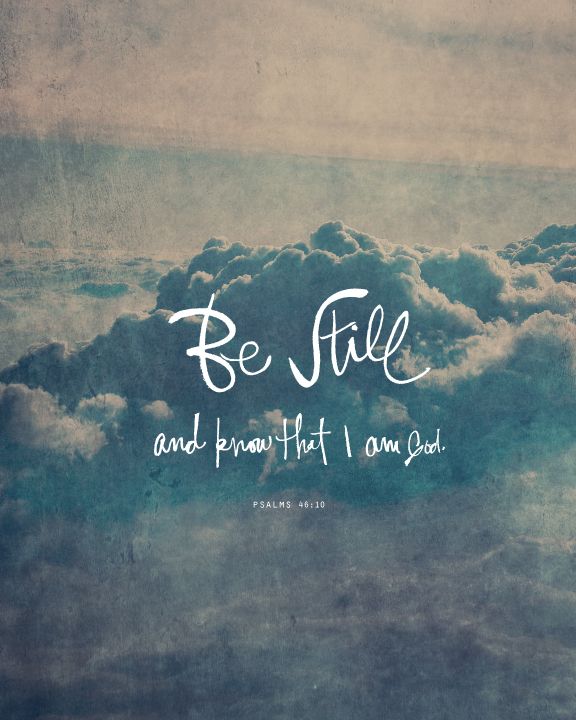 Be Still
and know that I am God.
PSALMS 46:10